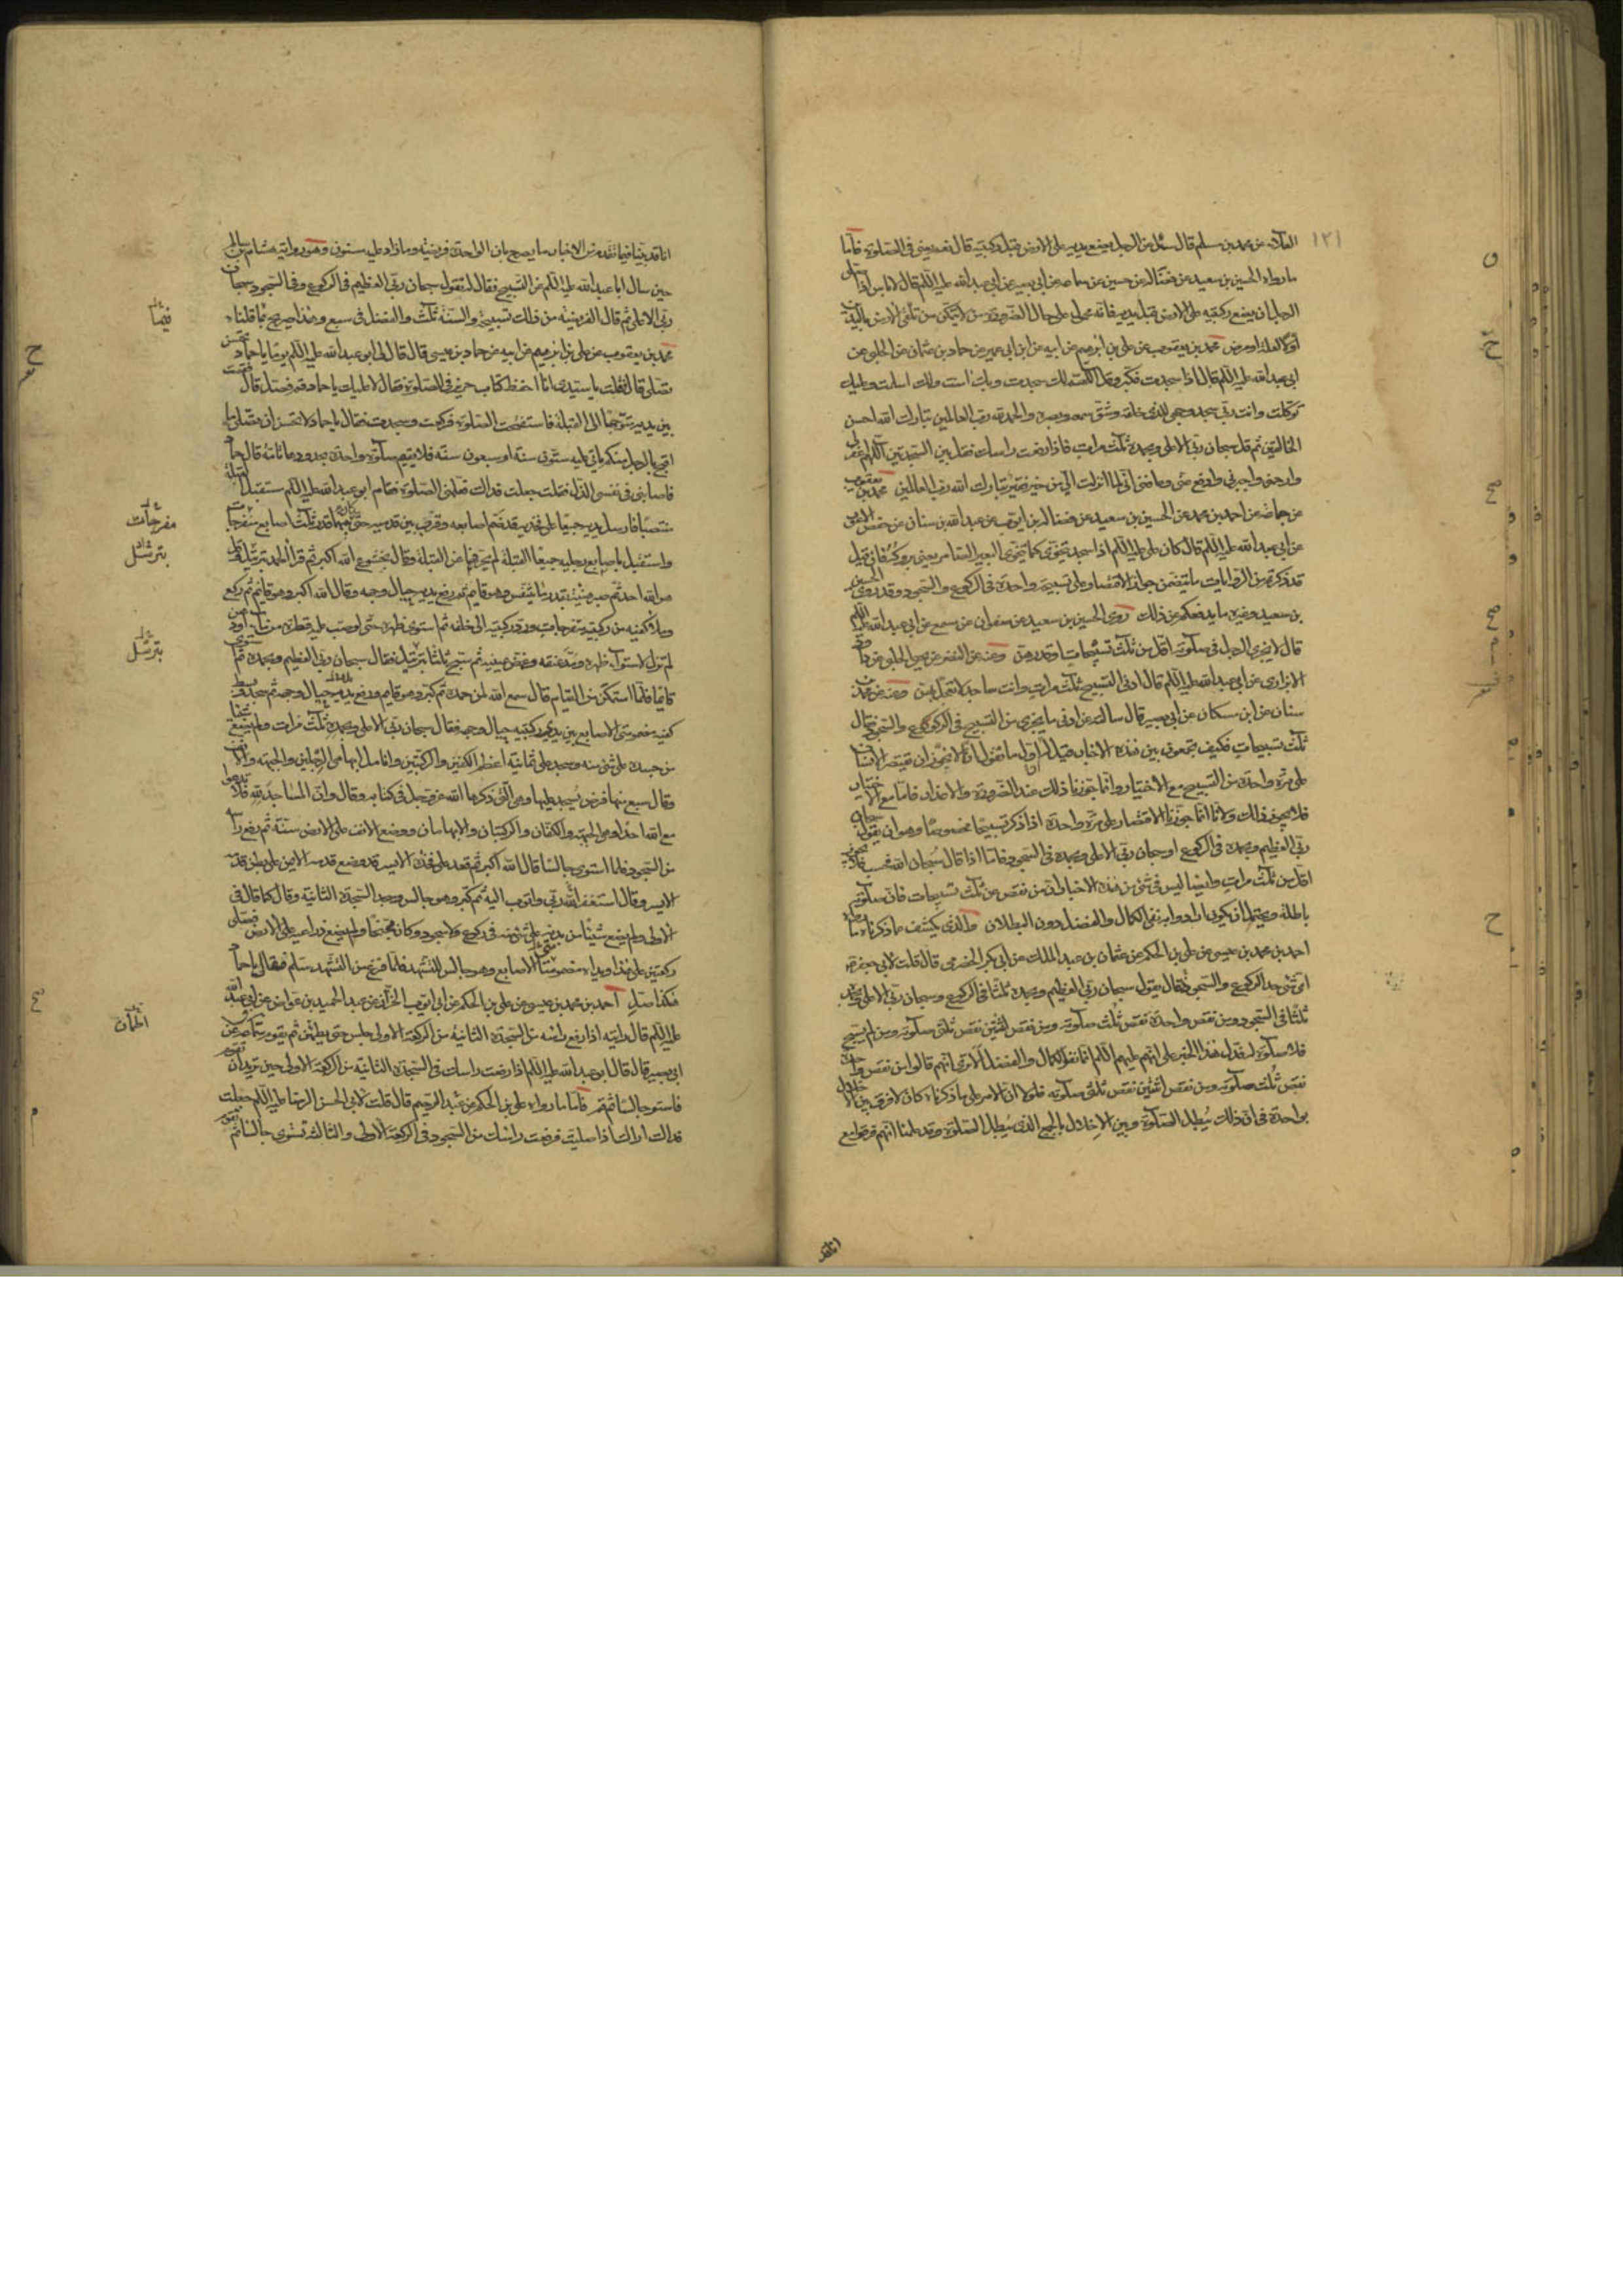 العلاء عن محمد بن مسلم قال سئل عن الرجل يضع يديه على الارض قبل ركبتيه قال نعم يعني في الصلوة فاما
ما رواه الحسين بن سعيد عن فضالة عن حسين عن سماعة عن ابي بصير عن ابي عبد الله عليه السلم قال لا باس اذا صلى
الرجل ان يضع ركبتيه على الارض قبل يديه فانه محمول على حال الضرورة من لا يتمكن من تلقى الارض باليدين
اولا لعلة او مرض محمد بن يعقوب عن علي بن ابرهيم عن ابيه عن ابن ابي عمير عن حماد بن عثمان عن الحلبي عن
ابي عبد الله عليه السلم قال اذا سجدت فكبر وقل اللهم لك سجدت وبك امنت ولك اسلمت وعليك
توكلت وانت ربي سجد وجهي للذي خلقه وشق سمعه وبصره والحمد لله رب العالمين تبارك الله احسن
الخالقين ثم قل سبحان ربي الاعلى وبحمده ثلث مرات فاذا رفعت راسك فقل بين السجدتين اللهم اغفر لي
وارحمني واجبرني وادفع عني وعافني اني لما انزلت الي من خير فقير تبارك الله رب العالمين محمد بن يعقوب
عن جماعة عن احمد بن محمد عن الحسين بن سعيد عن فضالة بن ايوب عن عبد الله بن سنان عن حفص الاعور
عن ابي عبد الله عليه السلم قال كان علي عليه السلم اذا سجد يتخوى كما يتخوى البعير الضامر يعني بروكه فان قيل
قد ذكرتم من الروايات ما يتضمن جواز الاقتصار على تسبيحة واحدة في الركوع والسجود وقد روى الحسين
بن سعيد وغيره ما يدفعكم عن ذلك روى الحسين بن سعيد عن صفوان عن مسمع عن ابي عبد الله عليه السلم
قال لا يجزي الرجل في صلوته اقل من ثلث تسبيحات او قدرهن وعنه عن النضر عن يحيى الحلبي عن داود
الابزاري عن ابي عبد الله عليه السلم قال ادنى التسبيح ثلث مرات وانت ساجد لا تعجل بهن وعنه عن محمد بن
سنان عن ابن مسكان عن ابي بصير قال سالته عن ادنى ما يجزي من التسبيح في الركوع والسجود فقال
ثلث تسبيحات فكيف تجمعون بين هذه الاخبار قيل له اول ما نقول انه لا يجوز ان يقتصر الانسان
على مرة واحدة من التسبيح مع الاختيار وانما جوزنا ذلك عند الضرورة والاعذار فاما مع الاختيار
فلا يجوز ذلك ولانا انما جوزنا الاقتصار على مرة واحدة اذا ذكر تسبيحا مخصوصا وهو ان يقول سبحان
ربي العظيم وبحمده في الركوع او سبحان ربي الاعلى وبحمده في السجود فاما اذا قال سبحان الله فحسب فلا يجوز
اقل من ثلث مرات وايضا ليس في شئ من هذه الاخبار ان من نقص عن ثلث تسبيحات فان صلوته
باطلة ويحتمل ان يكون ارادوا به نفي الكمال والفضل دون البطلان والذي يكشف عما ذكرناه ما رواه
احمد بن محمد بن عيسى عن علي بن الحكم عن عثمان بن عبد الملك عن ابي بكر الحضرمي قال قلت لابي جعفر
اي شئ حد الركوع والسجود فقال يقول سبحان ربي العظيم وبحمده ثلثا في الركوع وسبحان ربي الاعلى وبحمده
ثلثا في السجود ومن نقص واحدة نقص ثلث صلوته ومن نقص اثنتين نقص ثلثي صلوته ومن لم يسبح
فلا صلوة له فدل هذا الخبر على انهم عليهم السلم انما نفوا الكمال والفضل الا ترى انهم قالوا من نقص واحدة
نقص ثلث صلوته ومن نقص اثنتين نقص ثلثي صلوته فلولا ان الامر على ما ذكرناه كان لا فرق بين الاخلال
بواحدة في ان ذلك يبطل الصلوة وبين الاخلال بالجميع الذي يبطل الصلوة وقد علمنا انهم فرقوا مع
انا قد
١٢١
انا قد بينا فيما تقدم من الاخبار ما يصرح بان الواحدة فريضة وما زاد عليه سنون وهو رواية هشام بن سالم
حين سال ابا عبد الله عليه السلم عن التسبيح فقال له تقول سبحان ربي العظيم في الركوع وفي السجود سبحان
ربي الاعلى ثم قال الفريضة من ذلك تسبيحة والسنة ثلث والفضل في سبع وهذا صريح بما قلناه
محمد بن يعقوب عن علي بن ابرهيم عن ابيه عن حماد بن عيسى قال قال لي ابو عبد الله عليه السلم يوما يا حماد تحسن
تصلي قال فقلت يا سيدي انا احفظ كتاب حريز في الصلوة فقال لا عليك يا حماد قم فصل قال فقمت
بين يديه متوجها الى القبلة فاستفتحت الصلوة فركعت وسجدت فقال يا حماد لا تحسن ان تصلي ما
اقبح بالرجل منكم ياتي عليه ستون سنة او سبعون سنة فلا يقيم صلوة واحدة بحدودها تامة قال حماد
فاصابني في نفسي الذل فقلت جعلت فداك فعلمني الصلوة فقام ابو عبد الله عليه السلم مستقبل القبلة
منتصبا فارسل يديه جميعا على فخذيه قد ضم اصابعه وقرب بين قدميه حتى كان بينهما قدر ثلث اصابع منفرجات
واستقبل باصابع رجليه جميعا القبلة لم يحرفهما عن القبلة وقال بخشوع الله اكبر ثم قرأ الحمد بترتيل وقل
هو الله احد ثم صبر هنيئة بقدر ما يتنفس وهو قايم ثم رفع يديه حيال وجهه وقال الله اكبر وهو قايم ثم ركع
وملا كفيه من ركبتيه منفرجات ورد ركبتيه الى خلفه ثم استوى ظهره حتى لو صب عليه قطرة من ماء او دهن
لم تزل لاستواء ظهره ومد عنقه وغمض عينيه ثم سبح ثلثا بترتيل فقال سبحان ربي العظيم وبحمده ثم استوى
قايما فلما استمكن من القيام قال سمع الله لمن حمده ثم كبر وهو قايم ورفع يديه حيال وجهه ثم سجد وبسط
كفيه مضمومتي الاصابع بين يدي ركبتيه حيال وجهه فقال سبحان ربي الاعلى وبحمده ثلث مرات ولم يضع شيئا
من جسده على شئ منه وسجد على ثمانية اعظم الكفين والركبتين وانامل ابهامي الرجلين والجبهة والانف
وقال سبع منها فرض يسجد عليها وهي التي ذكرها الله عز وجل في كتابه وقال وان المساجد لله فلا تدعوا
مع الله احدا وهي الجبهة والكفان والركبتان والابهامان ووضع الانف على الارض سنة ثم رفع راسه
من السجود فلما استوى جالسا قال الله اكبر ثم قعد على فخذه الايسر قد وضع قدمه الايمن على بطن قدمه
الايسر وقال استغفر الله ربي واتوب اليه ثم كبر وهو جالس وسجد السجدة الثانية وقال كما قال في
الاولى ولم يضع شيئا من بدنه على شئ منه في ركوع ولا سجود وكان مجنحا ولم يضع ذراعيه على الارض فصلى
ركعتين على هذا ويداه مضمومتا الاصابع وهو جالس في التشهد فلما فرغ من التشهد سلم فقال يا حماد
هكذا صل احمد بن محمد بن عيسى عن علي بن الحكم عن ابي ايوب الخزاز عن عبد الحميد بن عواض عن ابي عبد الله
عليه السلم قال رايته اذا رفع راسه من السجدة الثانية من الركعة الاولى جلس حتى يطمئن ثم يقوم سماعة عن
ابي بصير قال قال ابو عبد الله عليه السلم اذا رفعت راسك في السجدة الثانية من الركعة الاولى حين تريد ان تقوم
فاستو جالسا ثم قم فاما ما رواه علي بن الحكم عن عبد الرحيم قال قلت لابي الحسن الرضا عليه السلم جعلت
فداك اراك اذا صليت فرفعت راسك من السجود في الركعة الاولى والثالثة تستوي جالسا ثم تقوم